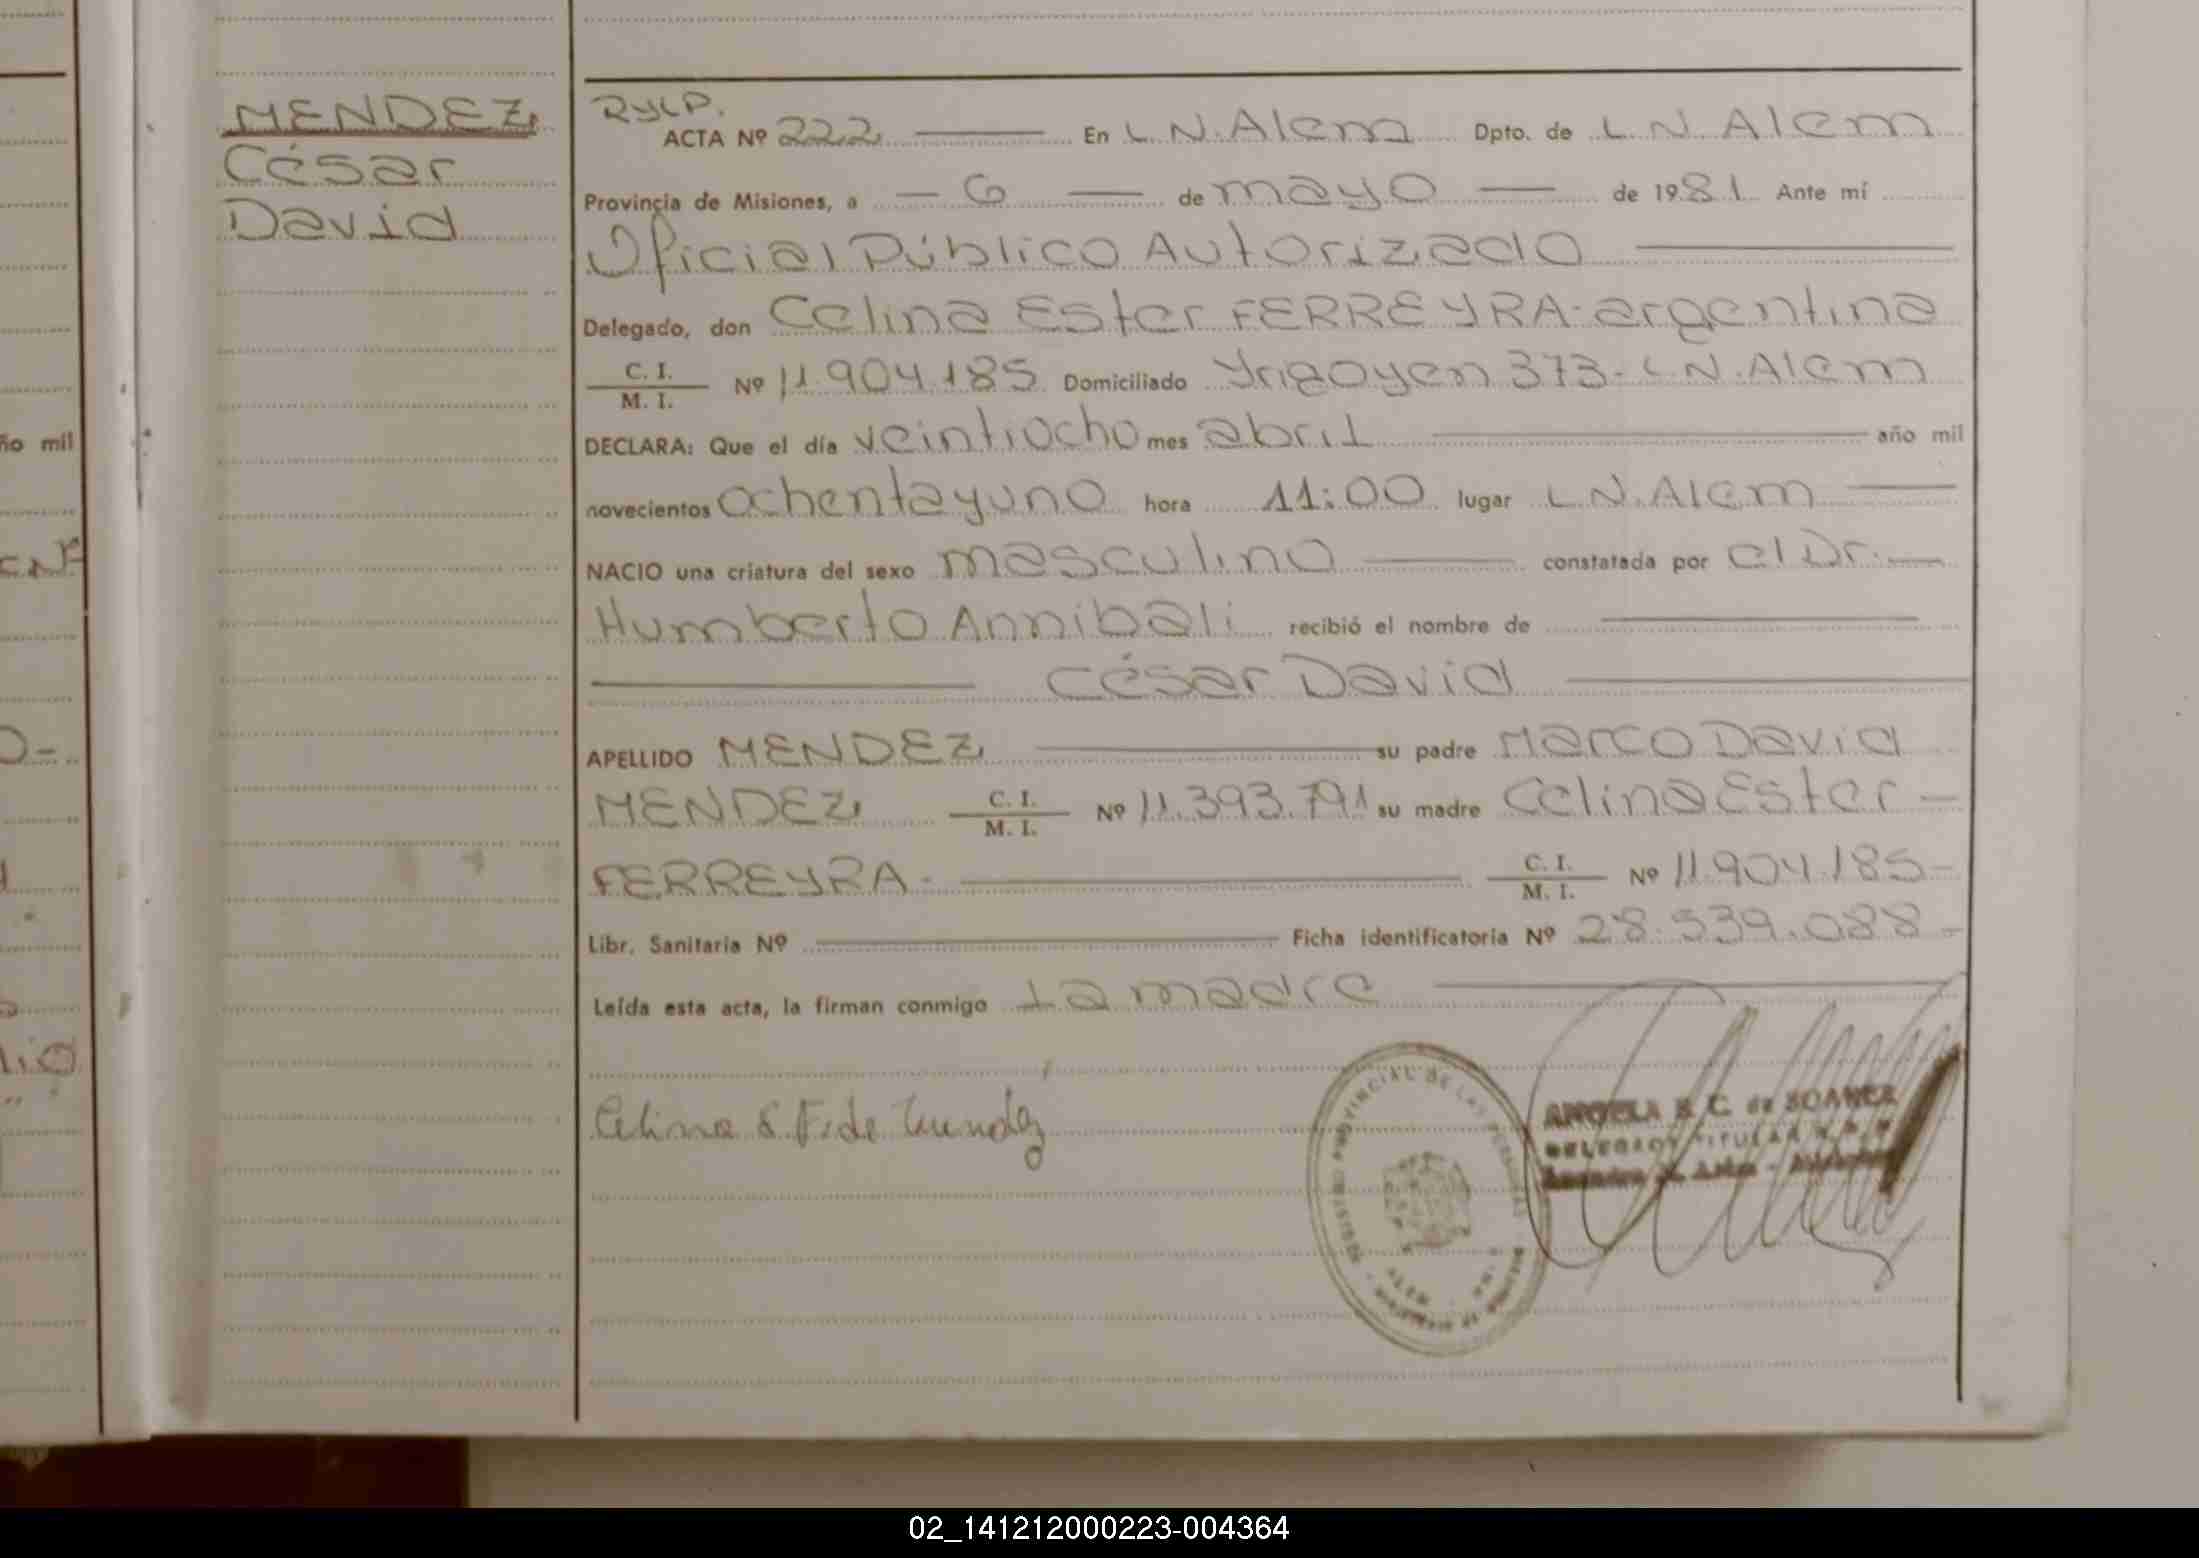 MENDEZ
César
David
ACTA Nº 222 En L. N. Alem Dpto. de L. N. Alem
Provincia de Misiones, a 6 de mayo de 1981 Ante mí
Oficial Público Autorizado
Delegado, don Celina Ester FERREYRA- argentina
C. I.
M. I. Nº 11.904.185 Domiciliado Yrigoyen 373- L. N. Alem
DECLARA: Que el día veintiocho mes abril año mil
novecientos ochentayuno hora 11:00 lugar L. N. Alem
NACIO una criatura del sexo masculino constatada por el Dr.
Humberto Annibali recibió el nombre de
César David
APELLIDO MENDEZ su padre Marco David
MENDEZ C. I. M. I. Nº 11.393.791 su madre Celina Ester -
FERREYRA- C. I. M. I. Nº 11.904.185-
Libr. Sanitaria Nº Ficha identificatoria Nº 28.539.088-
Leída esta acta, la firman conmigo la madre
Celina E F. de Mendez
PROVINCIAL DE LAS PERSONAS
ANGELA B. C. de SOAREZ
DELEGADO TITULAR
ño mil
02_141212000223-004364